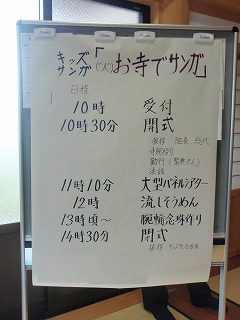 キッズサンガ「お寺でサンガ」
日程
10時 受付
10時30分 開式
挨拶 組長 総代
寺院紹介
勤行
法話
11時10分 大型パネルシアター
12時 流しそうめん
13時頃〜 腕輪念珠作り
14時30分 閉式
挨拶